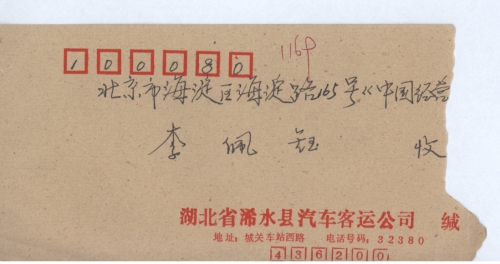 116P
100080
北京市海淀区海淀路165号《中国经营
李佩钰 收
湖北省浠水县汽车客运公司 缄
地址:城关车站西路 电话号码:32380
436200